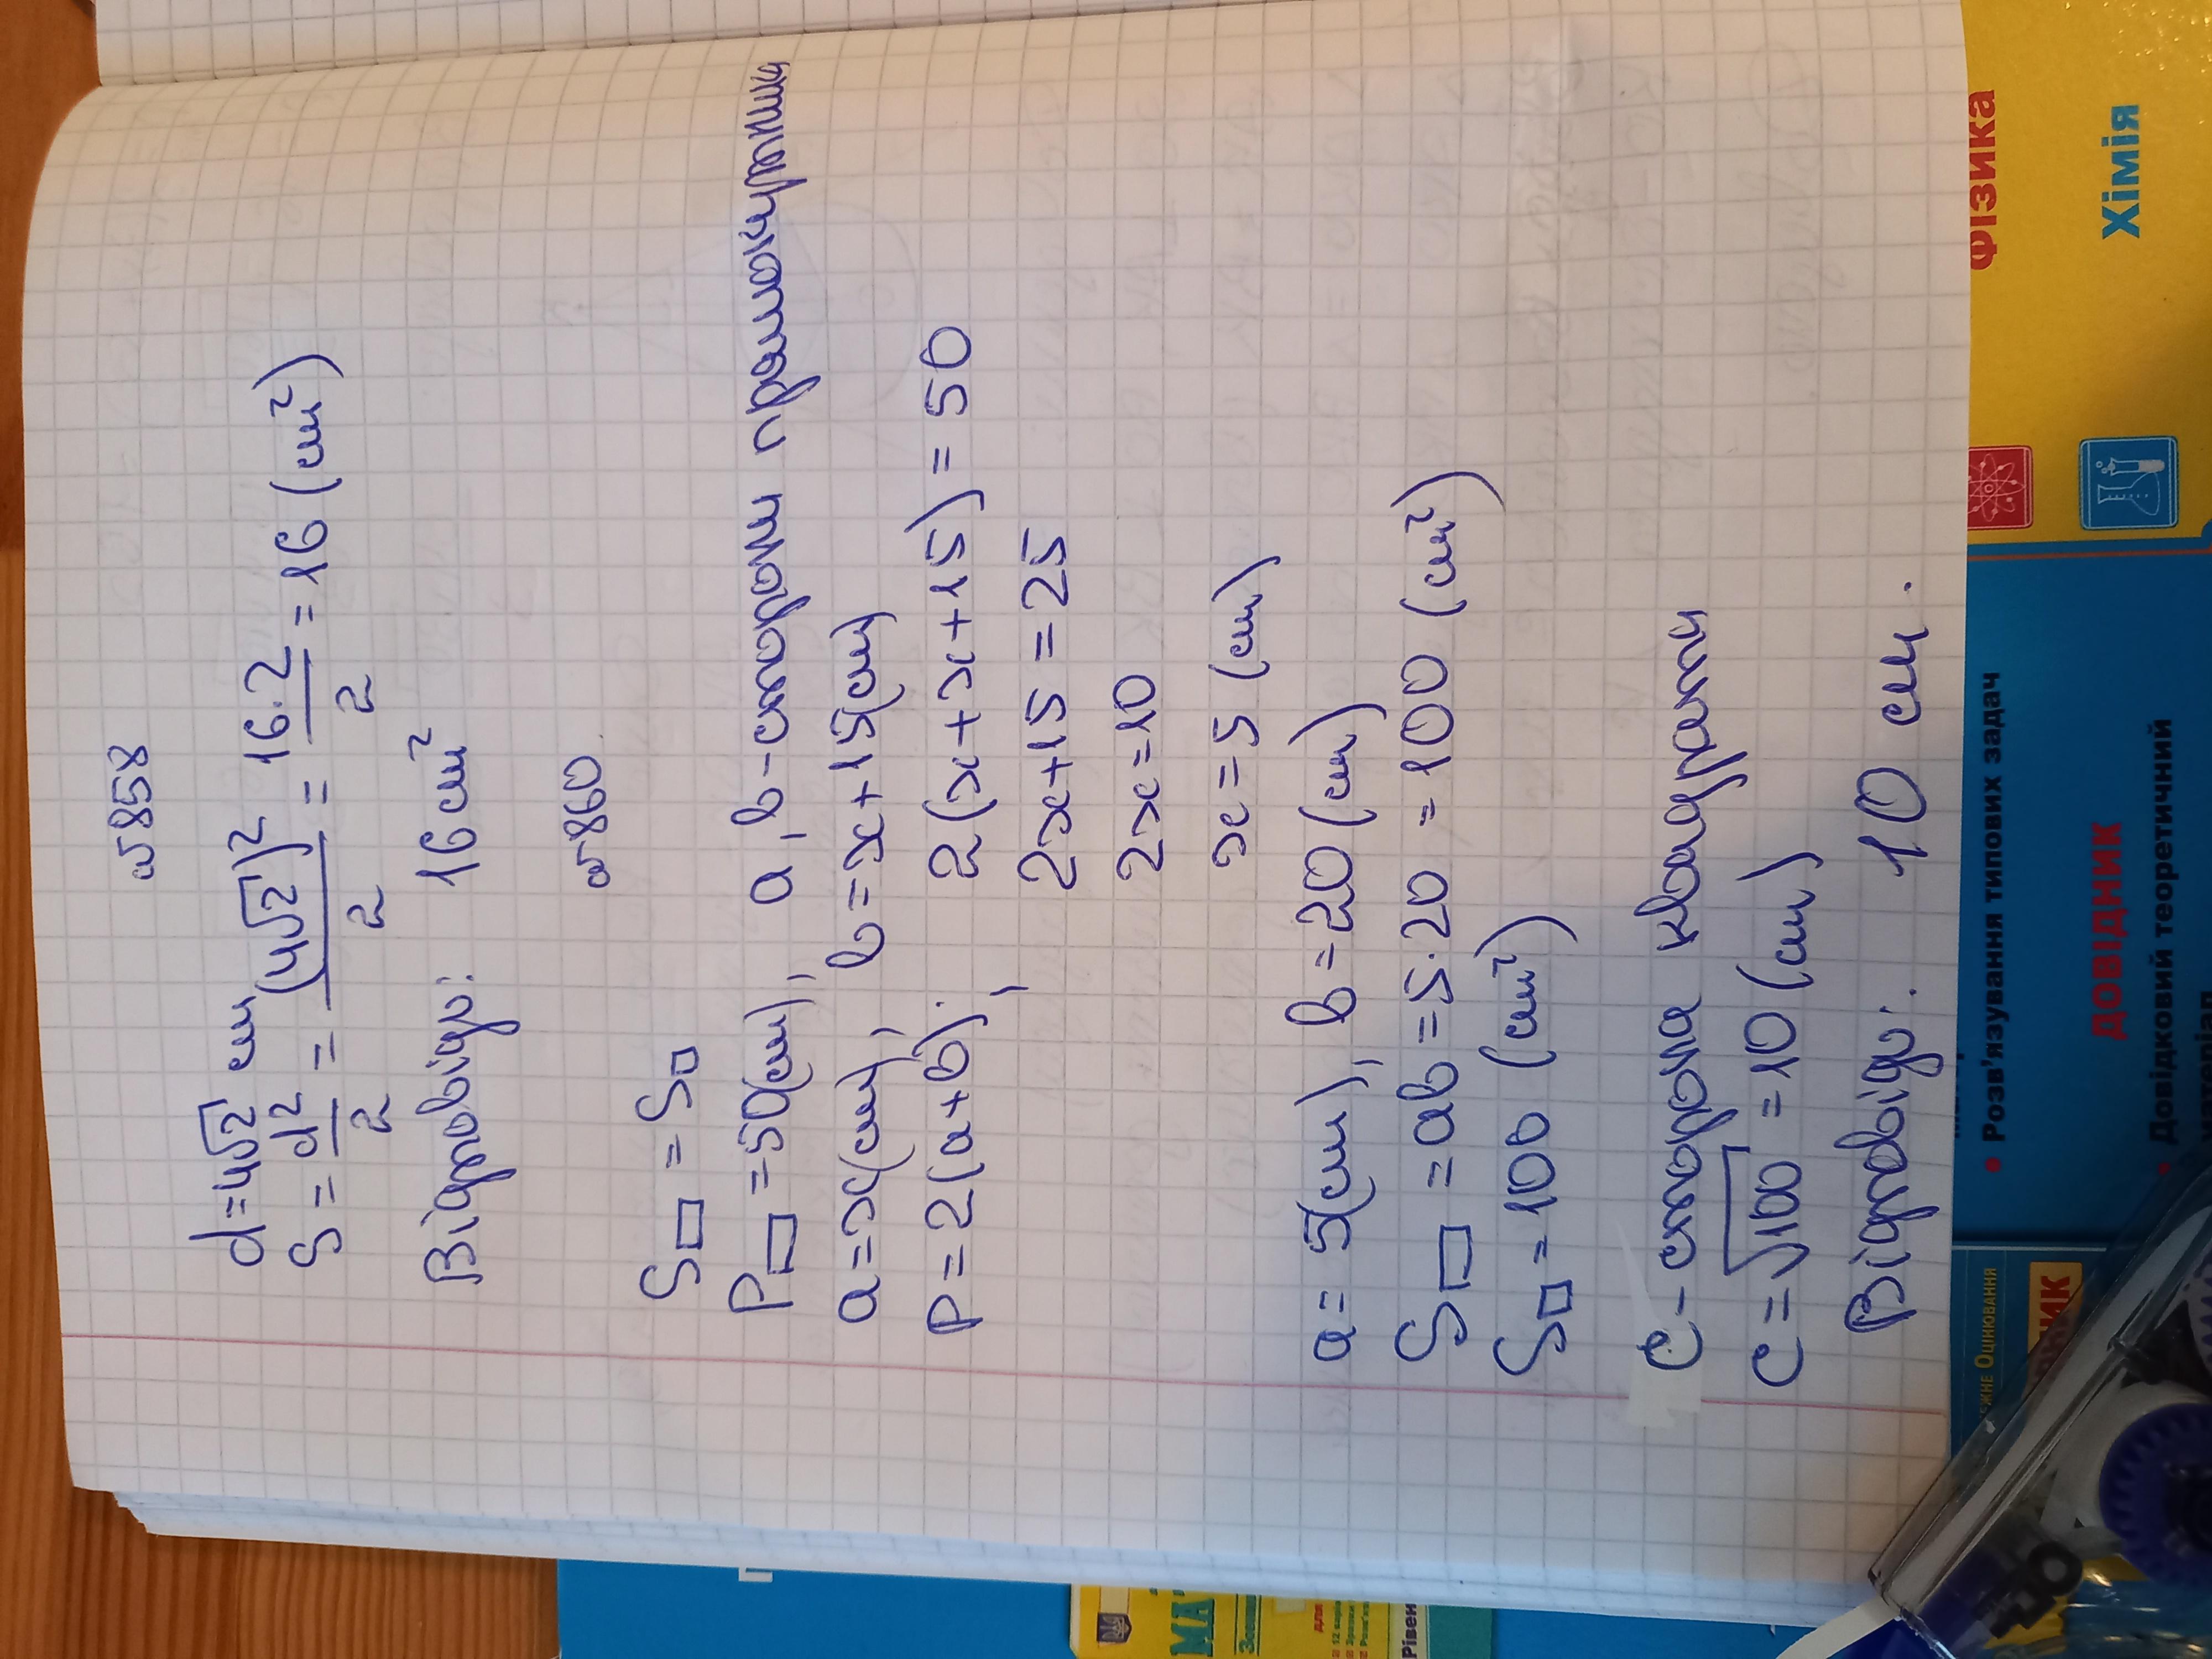 №858
d=4√2 см
S = d²/2 = (4√2)²/2 = 16·2/2 = 16 (см²)
Відповідь: 16 см²
№860
S▭ = S□
P▭ = 50(см), a, b - сторони прямокутника
a = x(см), b = x+15(см)
P = 2(a+b); 2(x+x+15) = 50
2x+15 = 25
2x=10
x=5 (см)
a = 5(см), b = 20(см)
S▭ = ab = 5·20 = 100 (см²)
S□ = 100 (см²)
c - сторона квадрата
c = √100 = 10 (см)
Відповідь: 10 см.
ФІЗИКА
Хімія
• Розв'язування типових задач
ДОВІДНИК
• Довідковий теоретичний
Оцінювання
МА
Рівень